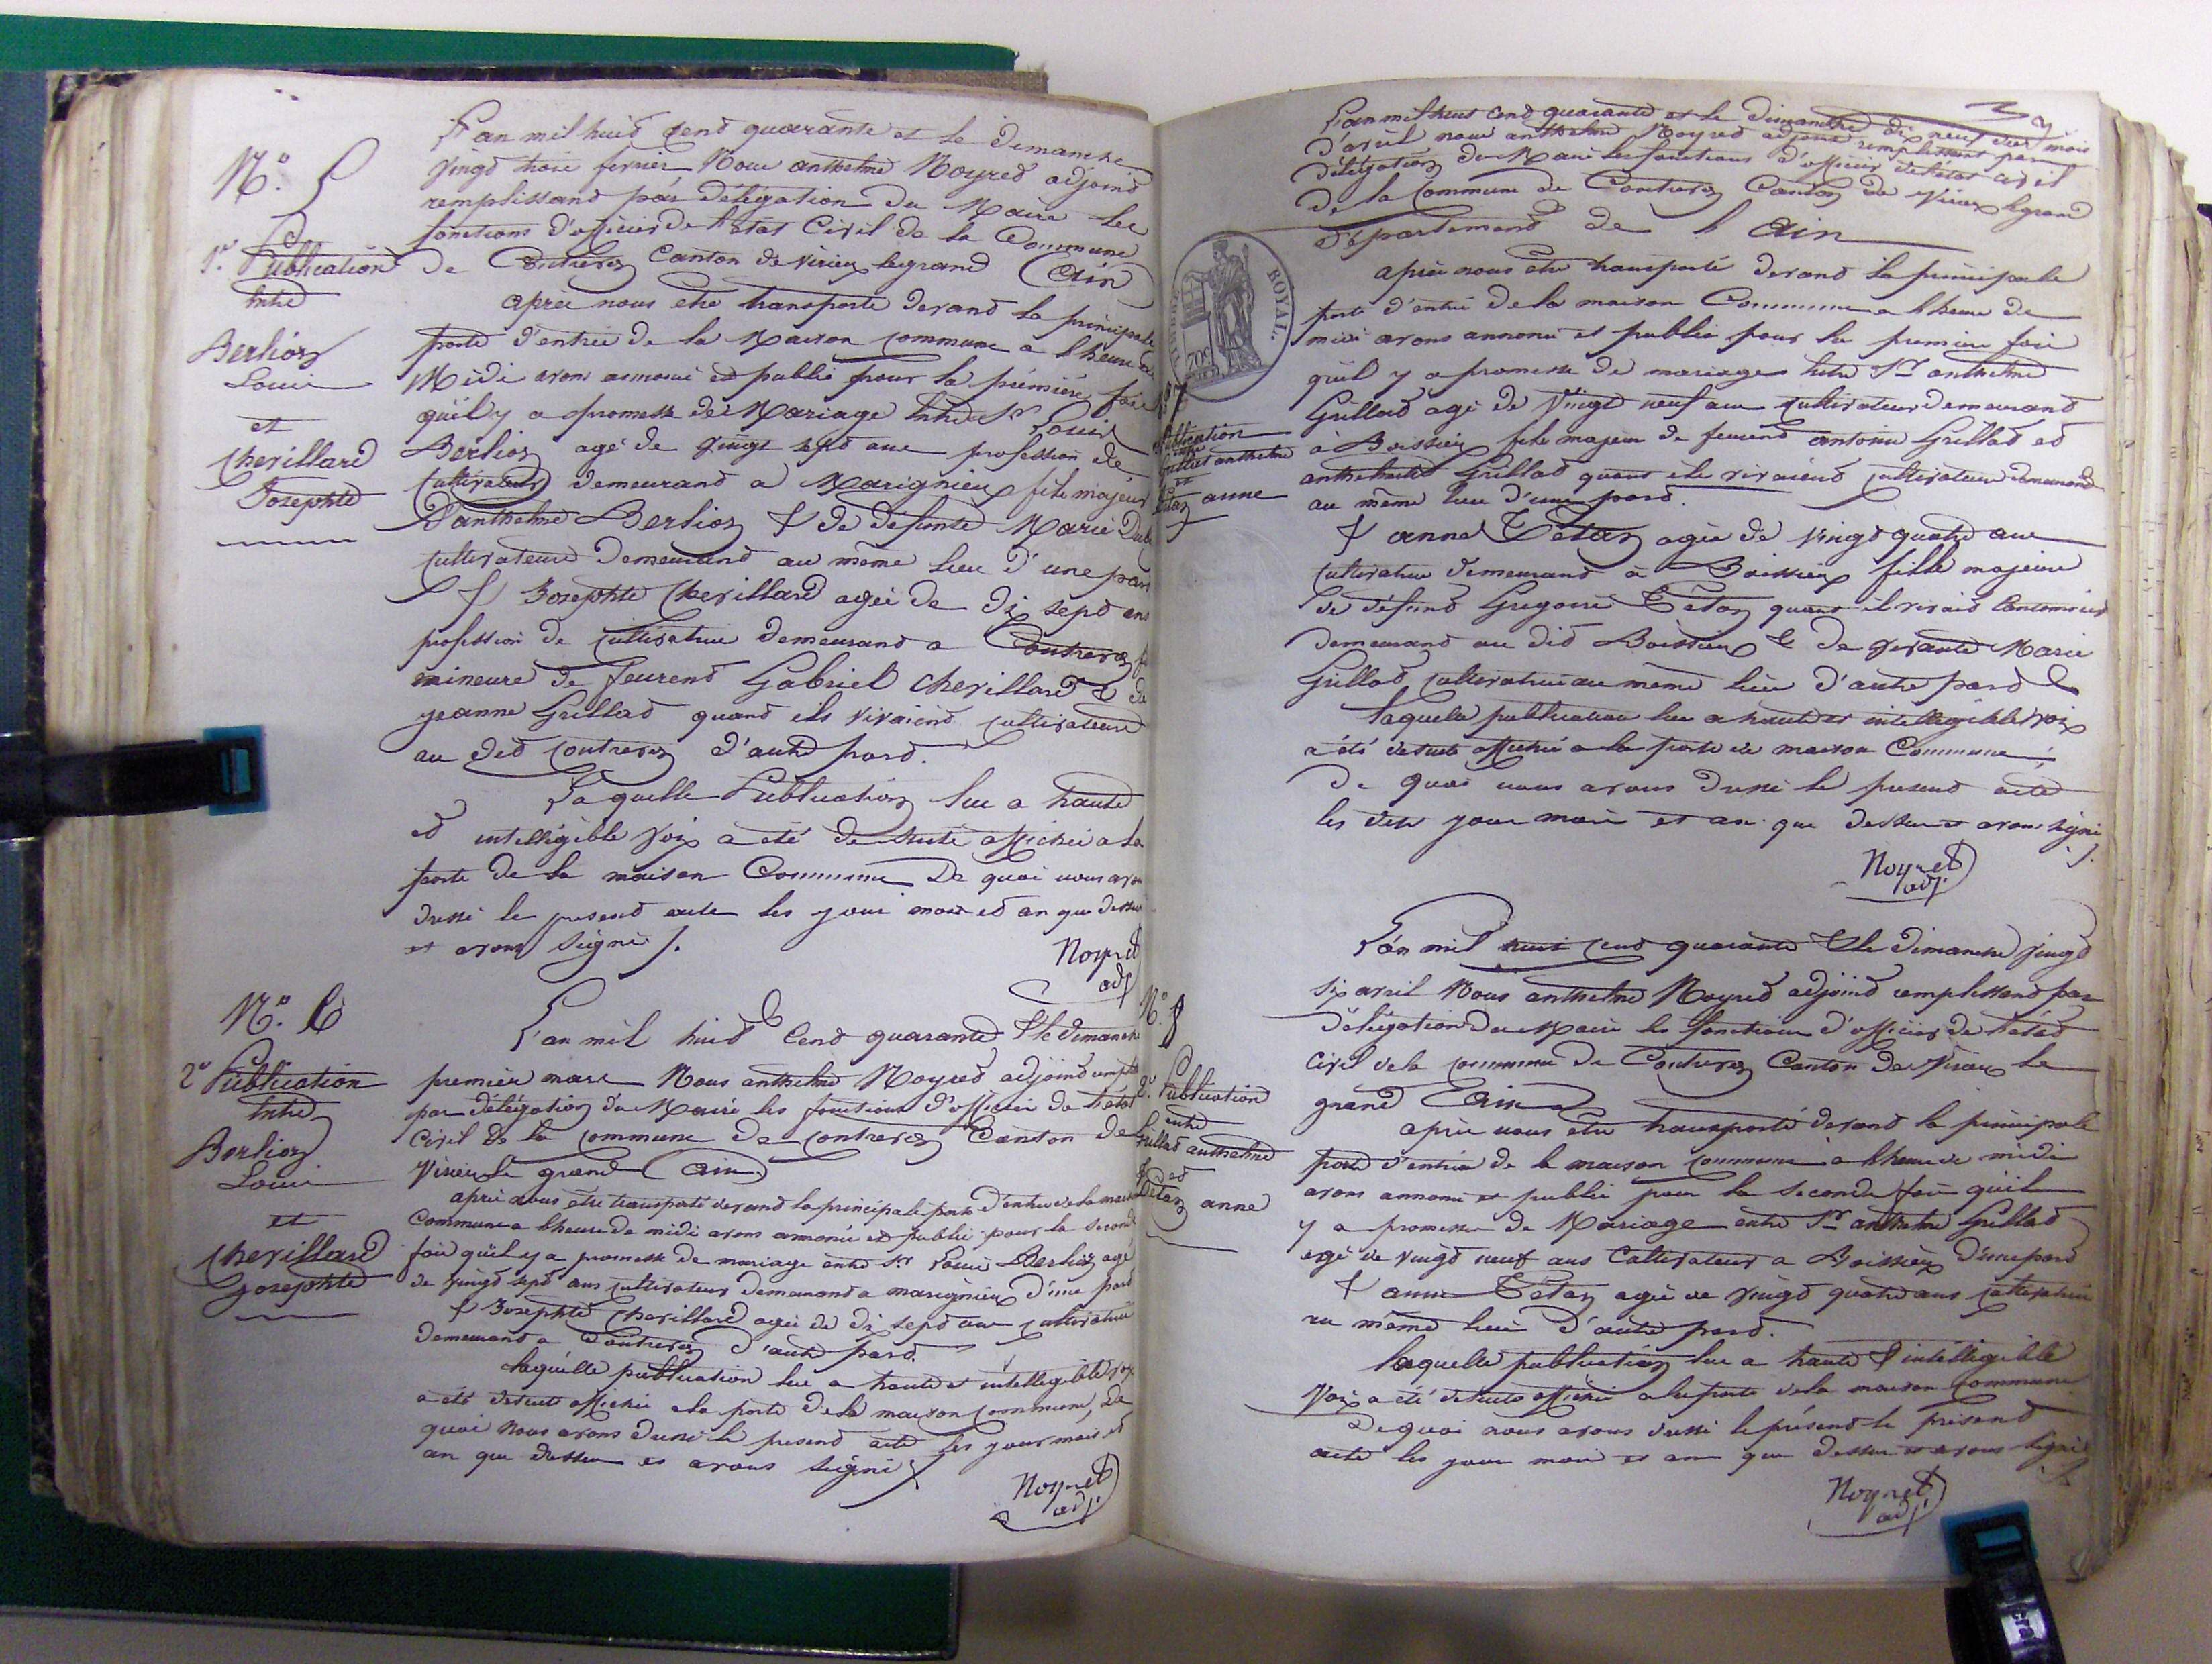 N.° 5
1.re Publication
Entre
Berlioz
Louis
et
Chevillard
Josephte
L'an mil huit cent quarante et le Dimanche
vingt trois fevrier Nous anthelme Noyret adjoint
remplissant par délégation du Maire les
fonctions d'officier de l'état Civil de la Commune
de Contrevoz Canton de Virieu legrand (Ain)
après nous etre transporté devant la principale
porte d'entrée de la Maison commune a l'heure de
Midi avons annoncé et publié pour la première fois
qu'il y a promesse de Mariage Entre Sr Louis
Berlioz agé de vingt sept ans profession de
Cultivateur demeurant a Marignieu fils majeur
D'anthelme Berlioz & de défunte Marie Dub
cultivateurs Demeurant au même lieu d'une part
& Josephte Chevillard agée de dix sept ans
profession de cultivatrice demeurant a Contrevoz fi
mineure de feurent Gabriel Chevillard & de
jeanne Grillat quand ils vivaient cultivateurs
au dit Contrevoz d'autre part.
Laquelle Publication lue a haute
et intelligible voix a été de suite affichée a la
porte de la maison Commune De quoi nous avons
dressé le present acte les jour mois et an que dessus
et avons signé ./.
Noyret
adj
N.° 6
2e Publication
Entre
Berlioz
Louis
et
Chevillard
Josephte
L'an mil huit Cent quarante & le dimanche
premier mars Nous anthelme Noyret adjoint rempliss
par délégation du Maire les fonctions d'officier de l'état
Civil de la commune de contrevoz Canton de
Virieu le grand (Ain)
après nous être transporté devant la principale porte d'entrée de la maison
Commune a l'heure de midi avons annoncé et publié pour la seconde
fois qu'il y a promesse de mariage entre Sr Louis Berlioz agé
de vingt sept ans cultivateur demeurant a marignieu D'une part
& Josephte Chevillard agée de dix sept ans cultivatrice
demeurant a Contrevoz D'autre part.
laquelle publication lue a haute et intelligible voix
a été de suite affichée a la porte de la maison commune, De
quoi nous avons dressé le present acte les jour mois et
an que dessus et avons signé ./.
Noyret
adj.
L'an mil huit Cent quarante et le Dimanche dix neuf du mois
D'avril nous anthelme Noyret adjoint remplissant par
délégation du Maire les fonctions d'officier de l'état civil
de la commune de Contrevoz Canton de Virieu legrand
Département de l'Ain
après nous être transporté devant la principale
porte d'entrée de la maison Commune a l'heure de
midi avons annoncé et publié pour la première fois
qu'il y a promesse de mariage Entre Sr anthelme
Grillat agé de Vingt neuf ans cultivateur demeurant
à Boissieu fils majeur de feurent antoine Grillat et
anthelmette Grillat quant ils vivaient cultivateurs demeurant
au même lieu d'une part.
& anne Tétaz agée de vingt quatre ans
cultivatrice demeurant à Boissieu fille majeure
de défunt Gregoire Tétaz quant il vivait Cantonnier
demeurant au dit Boissieu & de vivante Marie
Grillat cultivatrice au même lieu d'autre part
laquelle publication lue a haute et intelligible voix
a été de suite affichée a la porte de maison Commune,
De quoi nous avons dressé le present acte
les dits jour mois et an que dessus et avons signé ./.
Noyret
adj.
ROYAL.
70c
N.° 7
Publication
Grillat anthelme
et
Tétaz anne
N.° 8
2e Publication
entre
Grillat anthelme
et
Tétaz anne
L'an mil huit cent quarante & le dimanche vingt
six avril Nous anthelme Noyret adjoint remplissant par
délégation du Maire les fonctions d'officier de l'état
Civil de la commune de Contrevoz Canton de Virieu le
grand (Ain)
après nous être transporté devant la principale
porte d'entrée de la maison commune a l'heure de midi
avons annoncé et publié pour la seconde fois qu'il
y a promesse de Mariage entre Sr anthelme Grillat
agé de vingt neuf ans Cultivateur a Boissieu D'une part
& anne Tétaz agée de vingt quatre ans cultivatrice
au même lieu d'autre part.
laquelle publication lue a haute & intelligible
Voix a été de suite affichée a la porte de la maison commune
De quoi nous avons dressé le présent le présent
acte les jour mois et an que dessus et avons signé ./.
Noyret
adj.